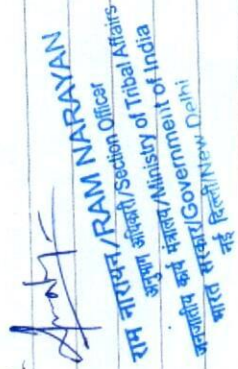 राम नारायण/RAM NARAYAN
अनुभाग अधिकारी/Section Officer
जनजातीय कार्य मंत्रालय/Ministry of Tribal Affairs
भारत सरकार/Government of India
नई दिल्ली/New Delhi